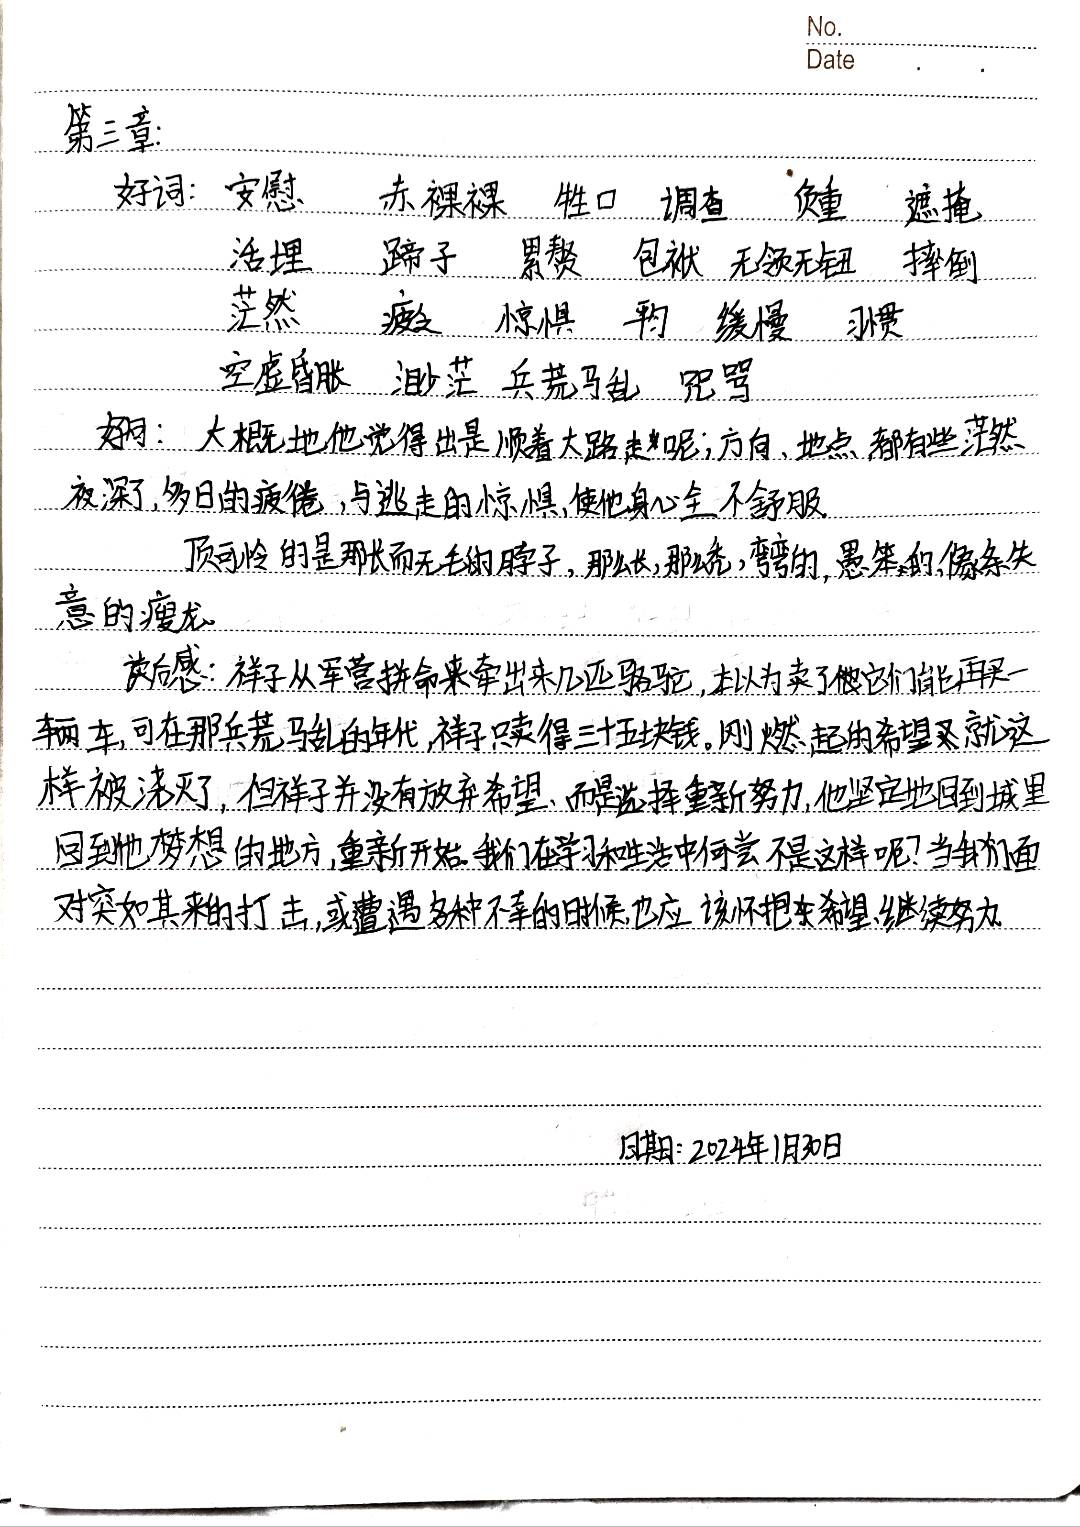 No.
Date
第三章:
好词: 安慰 赤裸裸 牲口 调查 负重 遮掩
活埋 蹄子 累赘 包袱 无领无钮 摔倒
茫然 疲乏 惊惧 平均 缓慢 习惯
空虚昏胀 渺茫 兵荒马乱 咒骂
好句: 大概地他觉得出是顺着大路走呢;方向、地点都有些茫然
夜深了,多日的疲倦,与逃走的惊惧,使他身心全不舒服.
顶可怜的是那长而无毛的脖子,那么长,那么秃,弯弯的,愚笨的,像条失
意的瘦龙。
读后感: 祥子从军营拼命来牵出来几匹骆驼,本以为卖了它们能再买一
辆车,可在那兵荒马乱的年代,祥子只卖得三十五块钱。刚燃起的希望又就这
样被浇灭了,但祥子并没有放弃希望、而是选择重新努力,他坚定地回到城里
回到他梦想的地方,重新开始。我们在学习和生活中何尝不是这样呢?当我们面
对突如其来的打击,或遭遇各种不幸的时候,也应该怀抱希望、继续努力.
日期: 2024年1月30日